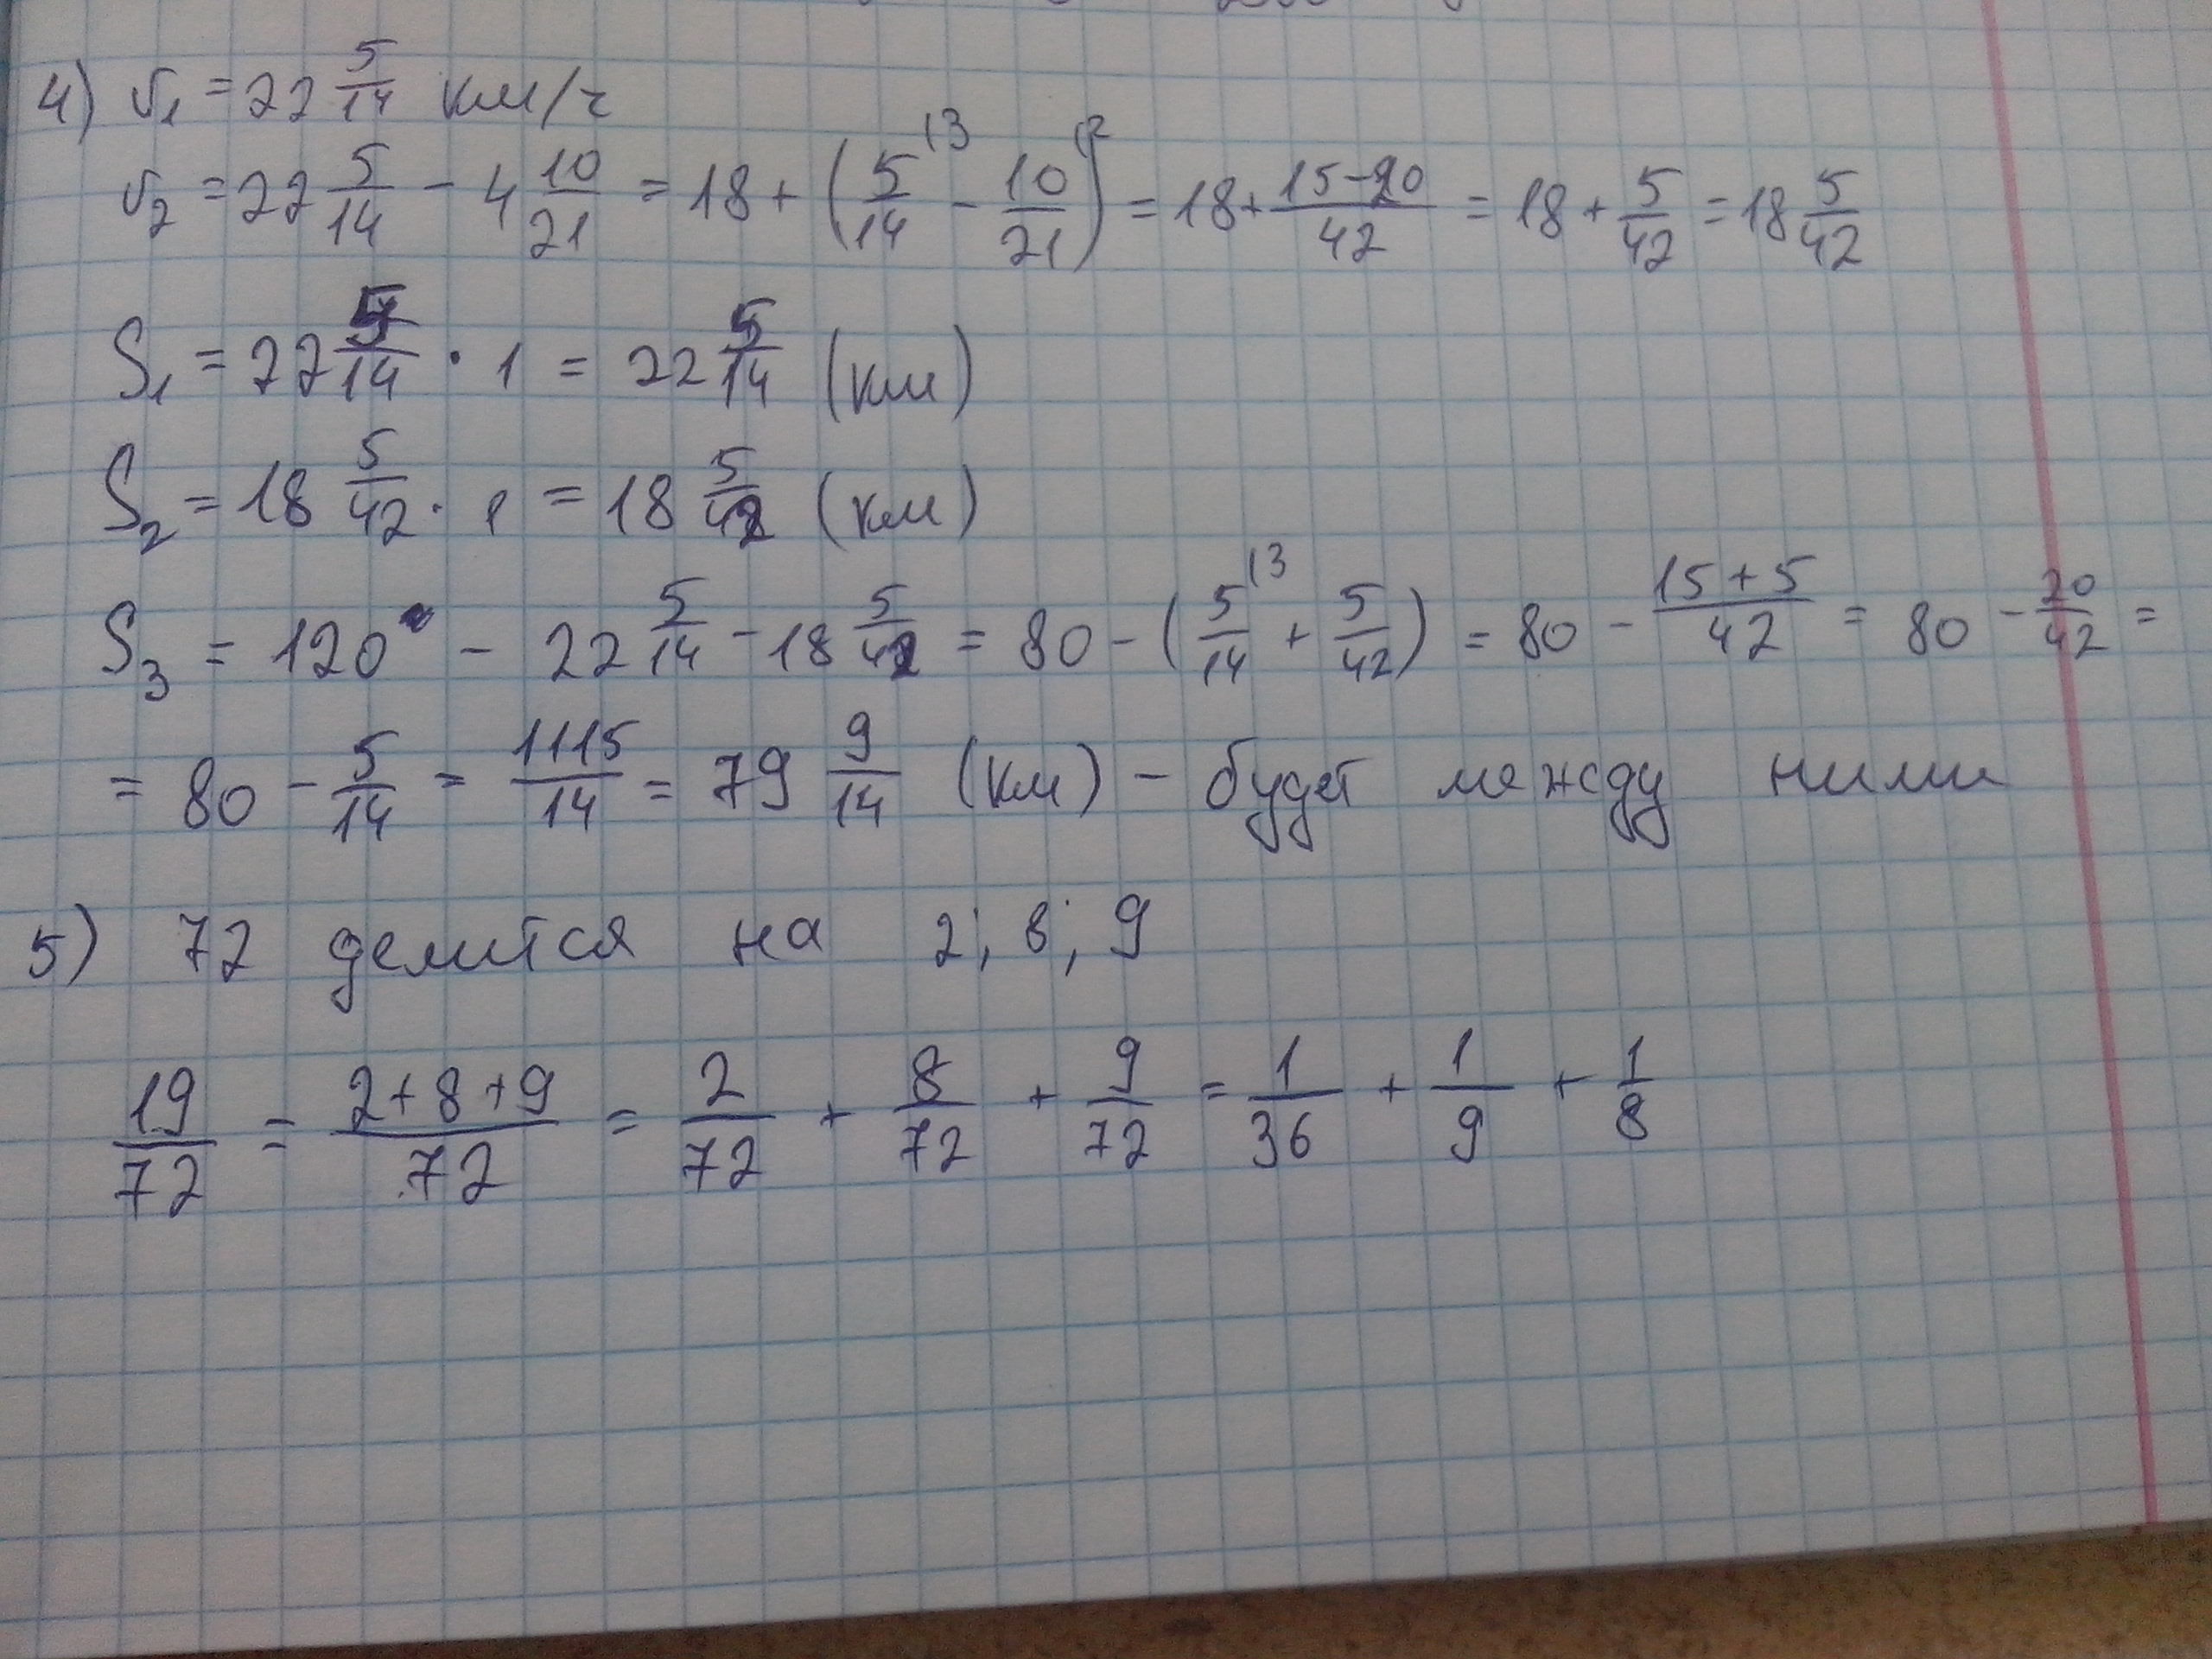 4) v₁ = 22 5/14 км/ч
v₂ = 22 5/14 - 4 10/21 = 18 + (5/14 (3 - 10/21) (2 = 18 + (15-20)/42 = 18 + 5/42 = 18 5/42
S₁ = 22 5/14 · 1 = 22 5/14 (км)
S₂ = 18 5/42 · 1 = 18 5/42 (км)
S₃ = 120 - 22 5/14 - 18 5/42 = 80 - (5/14 (3 + 5/42) = 80 - (15+5)/42 = 80 - 20/42 =
= 80 - 5/14 = 1115/14 = 79 9/14 (км) - будет между ними
5) 72 делится на 2; 8; 9
19/72 = (2+8+9)/72 = 2/72 + 8/72 + 9/72 = 1/36 + 1/9 + 1/8